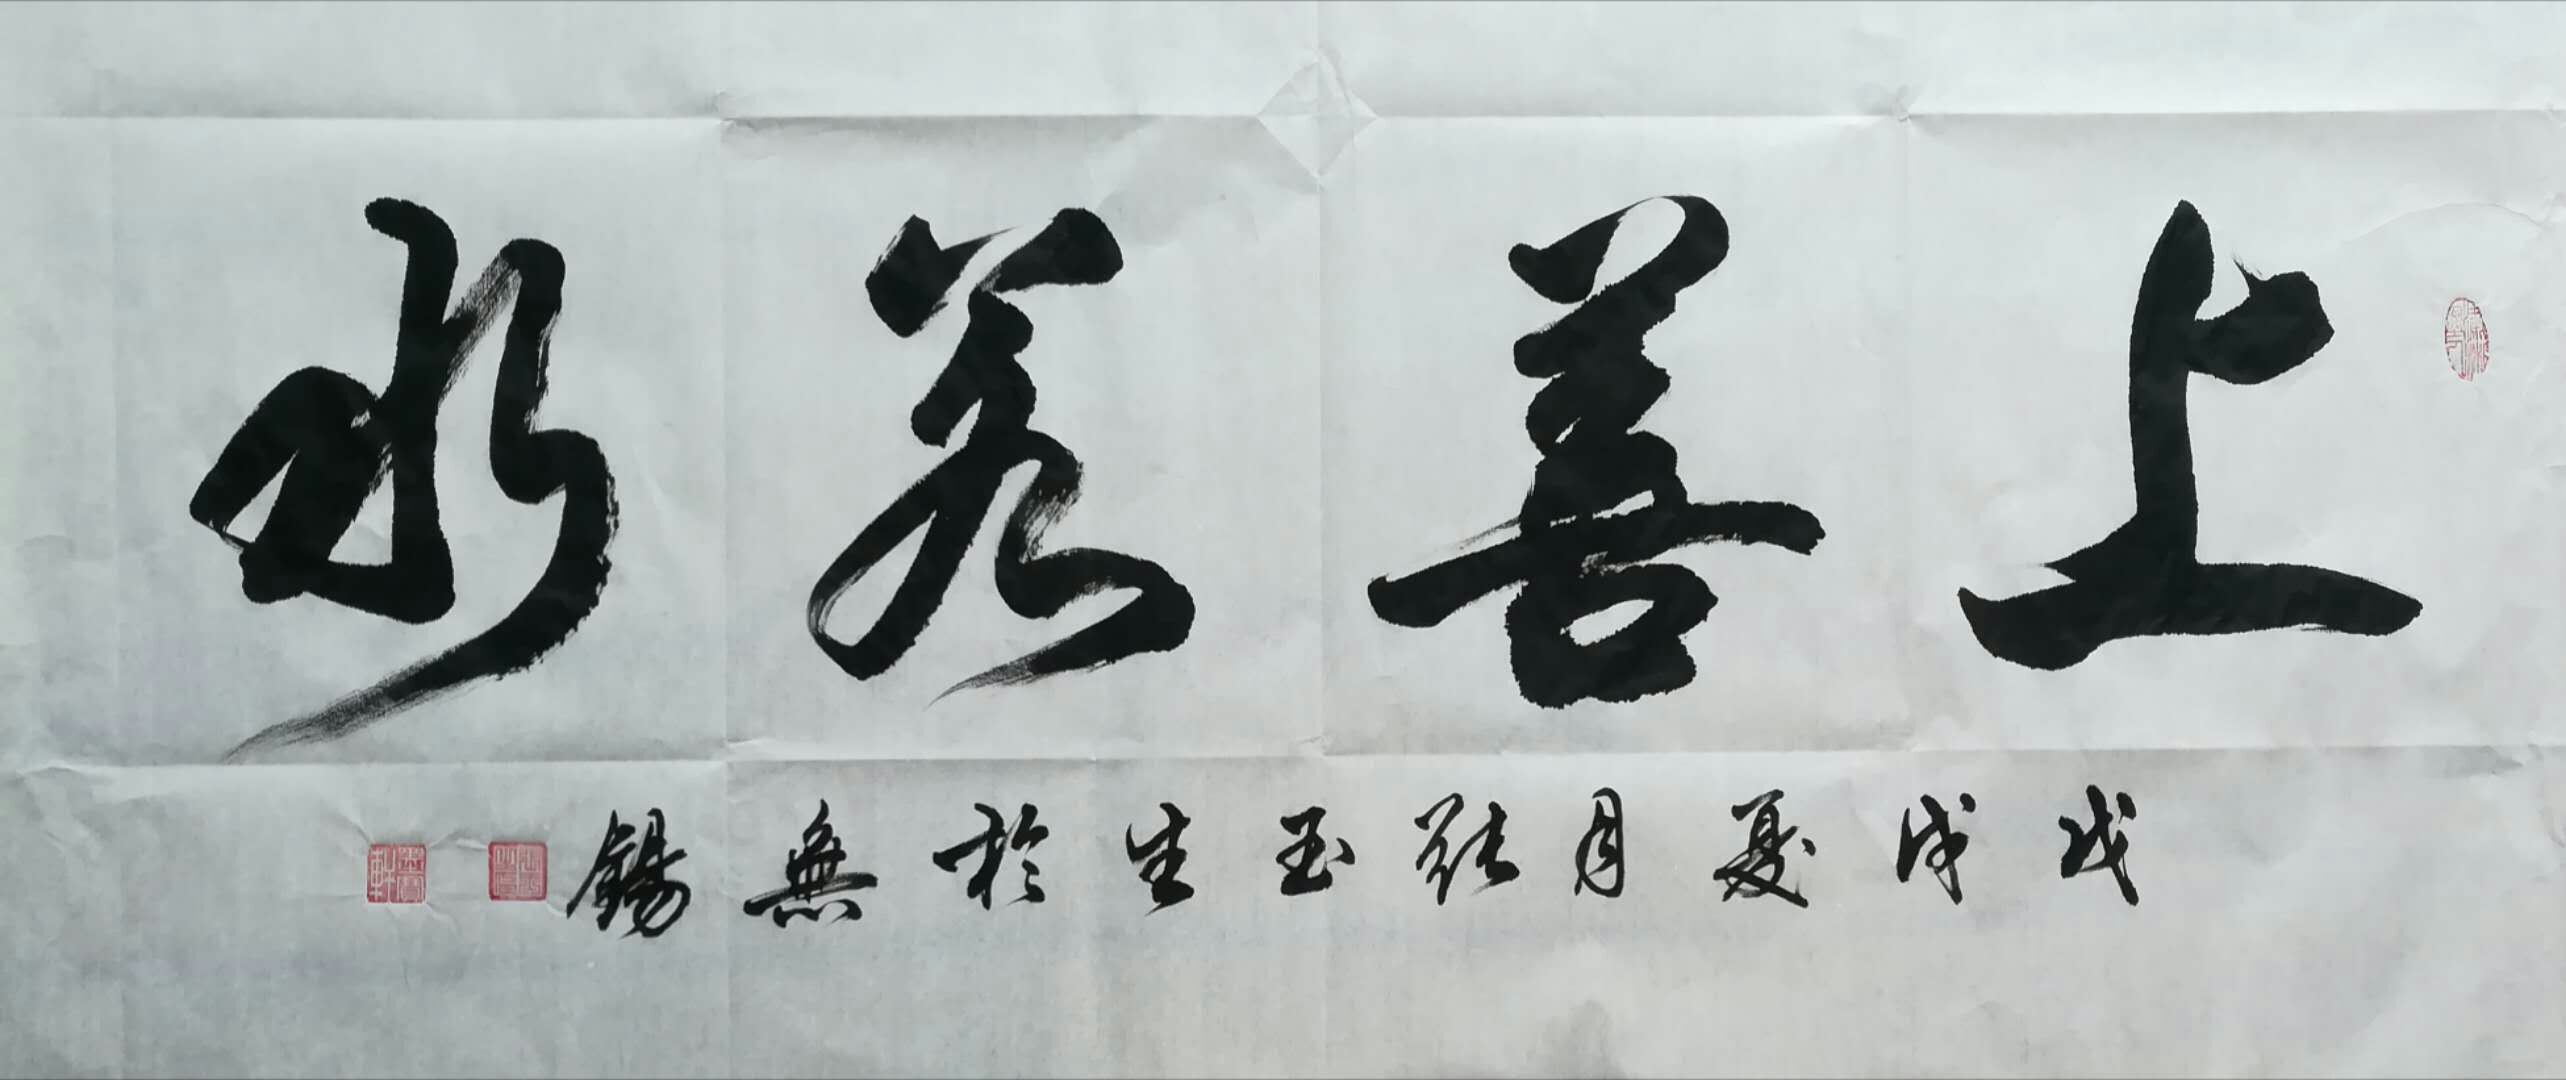 上善若水
戊戌夏月張玉生於無錫